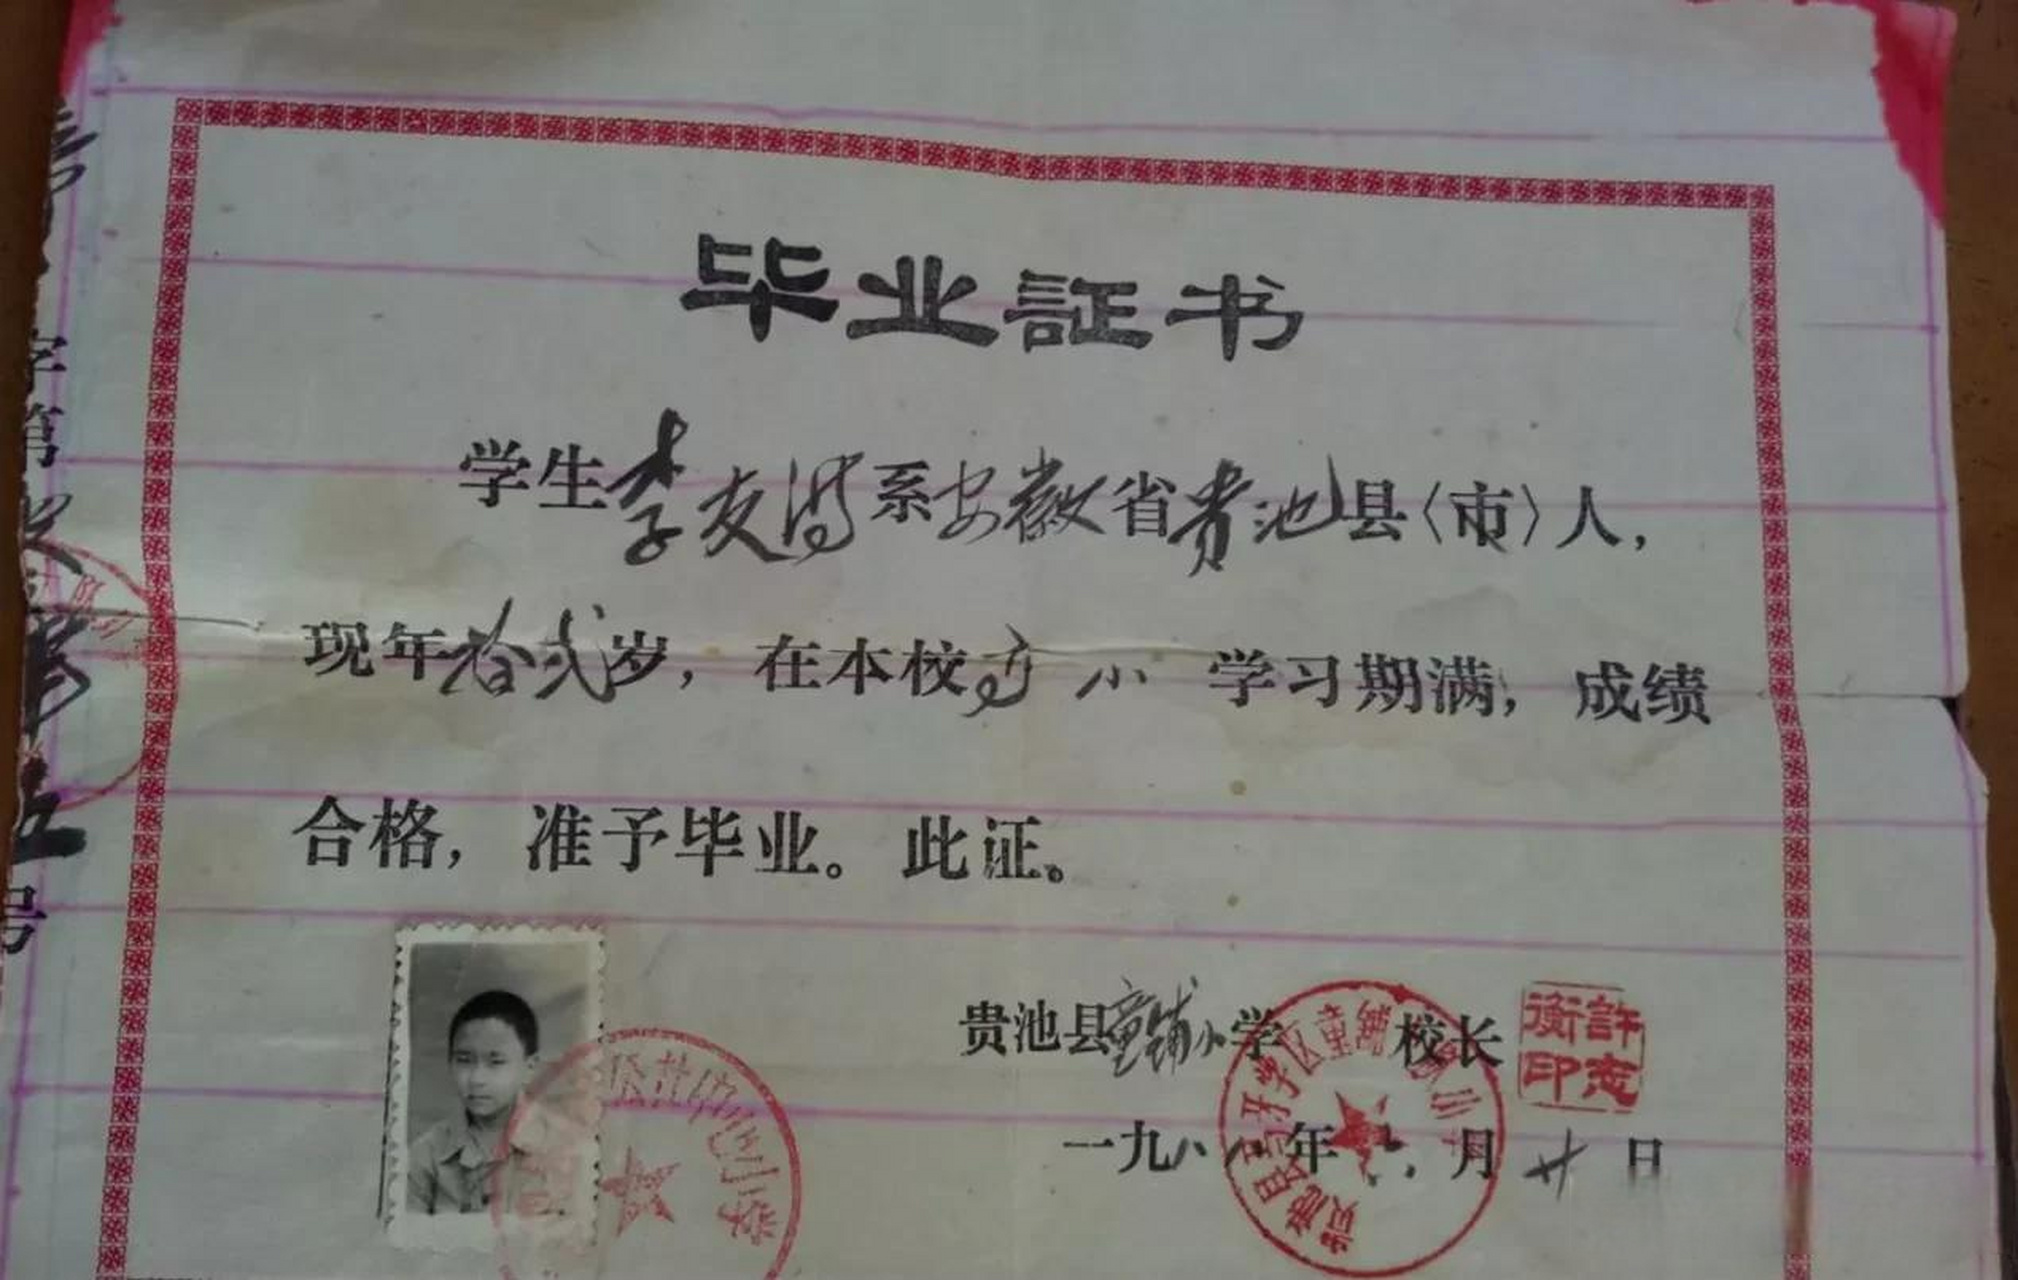 毕业証书
学生李友鸿系安徽省贵池县〈市〉人，
现年拾弍岁，在本校高小学习期满，成绩
合格，准予毕业。此证。
贵池县童铺小学 校长
許志衡印
一九八 年 月 廿 日
字第
五号
公社中心小学
贵池县 牙学区童铺